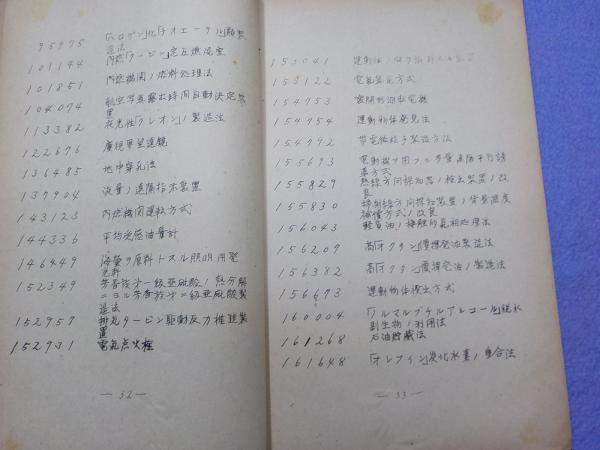 95975 「ハロゲン」化「チオエーテル」類製
造法
101144 内燃「タービン」定圧燃焼室
101851 内燃機関ノ燃料処理法
104074 航空写真露出時間自動決定装
置
113382 夜光性「クレオン」ノ製造法
122676 廣視界望遠鏡
136485 地中穿孔法
137904 流量ノ遠隔指示装置
143123 内燃機関運転方式
144336 平均受感油量計
146449 海螢ヲ原料トスル照明用発
光料
152349 芳香族第一級亜砒酸ノ熱分解
ニヨル芳香族第二級亜砒酸製
造法
152957 排気タービン駆動反力推進装
置
152931 電気点火栓
— 32 —
153041
153122 電気装定方式
154753 密閉形
154954 運動物体発見法
154992 帯電微粒子製造方法
155693 電動機ヲ用フル多重遠隔平行誘
導方式
155829 熱線方向探知器ノ検出装置ノ改
良
155830 輻射線方向探知装置ノ背景温度
補償方式ノ改良
156043 軽質油ノ接触的気相処理法
156209 高「オクタン」價揮発油製造法
156382 高「オクタン」價揮発油ノ製造法
156673 運動物体検出方式
160004 「ノルマルブチルアルコール」脱水
副生物ノ利用法
161268 石油貯蔵法
161648 「オレフイン」炭化水素ノ重合法
— 33 —